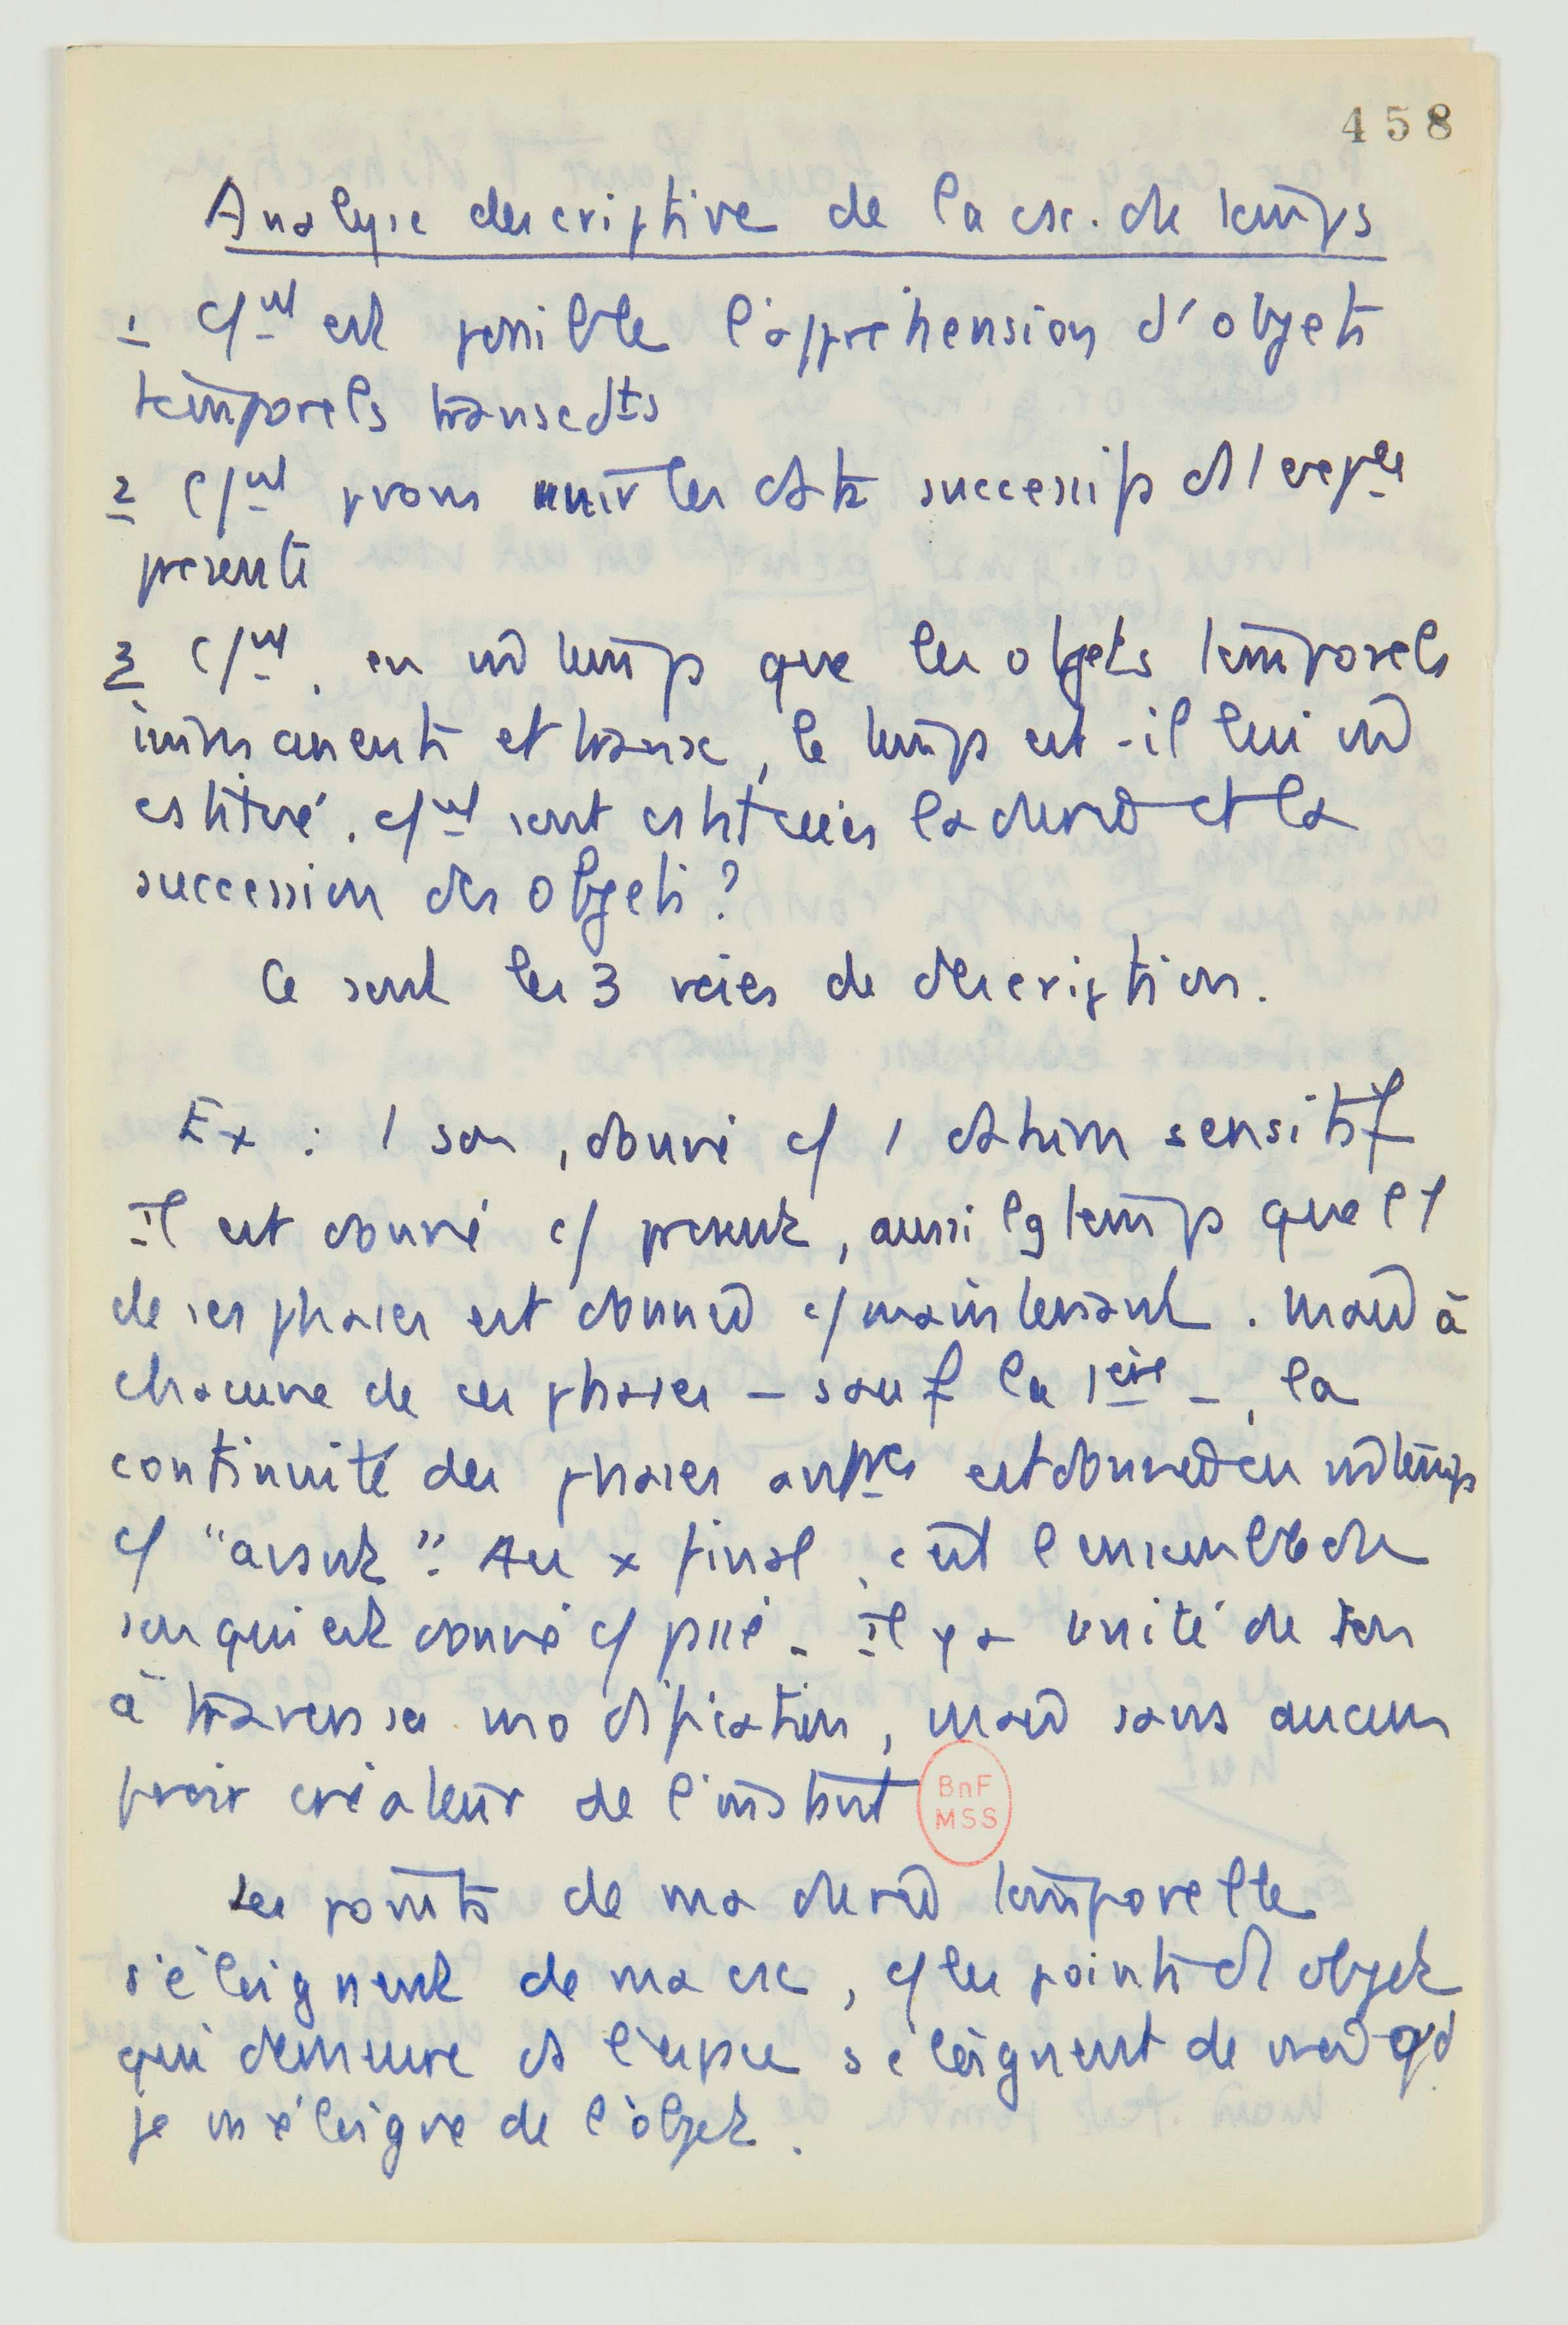 458
Analyse descriptive de la csc. de temps
1 C/nt est possible l'appréhension d'objets
temporels transcdts
2 C/nt pvons unir les dts successifs ds 1 repre
présente
3 C/nt, en m̂ temps que les objets temporels
immanents et transc, le temps est-il lui m̂
cstitué. C/nt sont cstituées la durée et la
succession des objets ?
Ce sont les 3 voies de description.
Ex : 1 son, donné c/ 1 datum sensitif
Il est donné c/ présent, aussi lg temps que l'1
de ses phases est donnée c/ maintenant. Mais à
chacune de ces phases – sauf la 1ère –, la
continuité des phases antres est donnée en m̂ temps
c/ "avant". Au x final, c'est l'ensemble du
son qui est donné c/ pssé. Il y a unité de son
à travers sa modification, mais sans aucun
pvoir créateur de l'instant
Les points de ma durée temporelle
s'éloignent de ma csc, c/ les points d'1 objet
qui demeure ds l'espace s'éloignent de moi qd
je m'éloigne de l'objet.
BnF
MSS